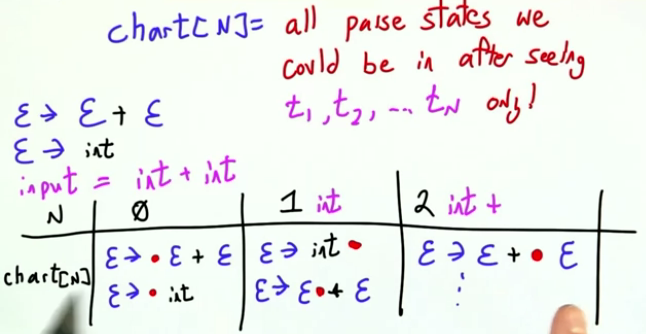 chart[N] = all parse states we
could be in after seeing
t₁, t₂, ... tN only!
Ɛ → Ɛ + Ɛ
Ɛ → int
input = int + int
N 0 1 int 2 int +
chart[N] Ɛ → • Ɛ + Ɛ Ɛ → int • Ɛ → Ɛ + • Ɛ
Ɛ → • int Ɛ → Ɛ • + Ɛ ⋮